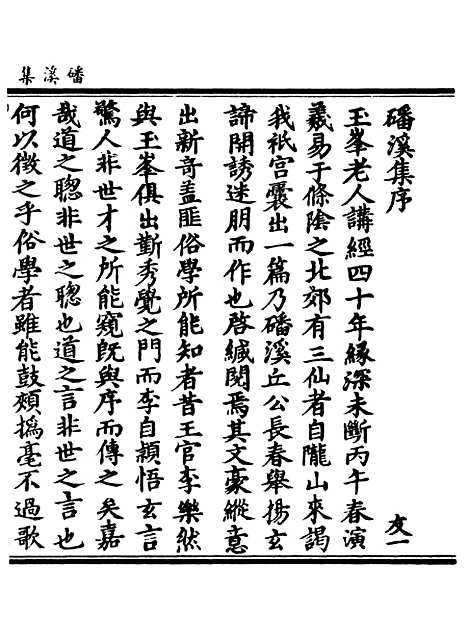 磻溪集
磻溪集序
友一
玉峯老人講經四十年緣深未斷丙午春演
羲易于條陰之北郊有三仙者自隴山來謁
我祇宫褁出一篇乃磻溪丘公長春舉揚玄
諦開誘迷朋而作也啓緘閱焉其文豪縱意
出新奇盖匪俗學所能知者昔王官李樂然
與玉峯俱出斳秀覺之門而李自顛悟玄言
驚人非世才之所能窺旣與序而傳之矣嘉
哉道之聦非世之聦也道之言非世之言也
何以徵之乎俗學者雖能鼓頰撝毫不過歌